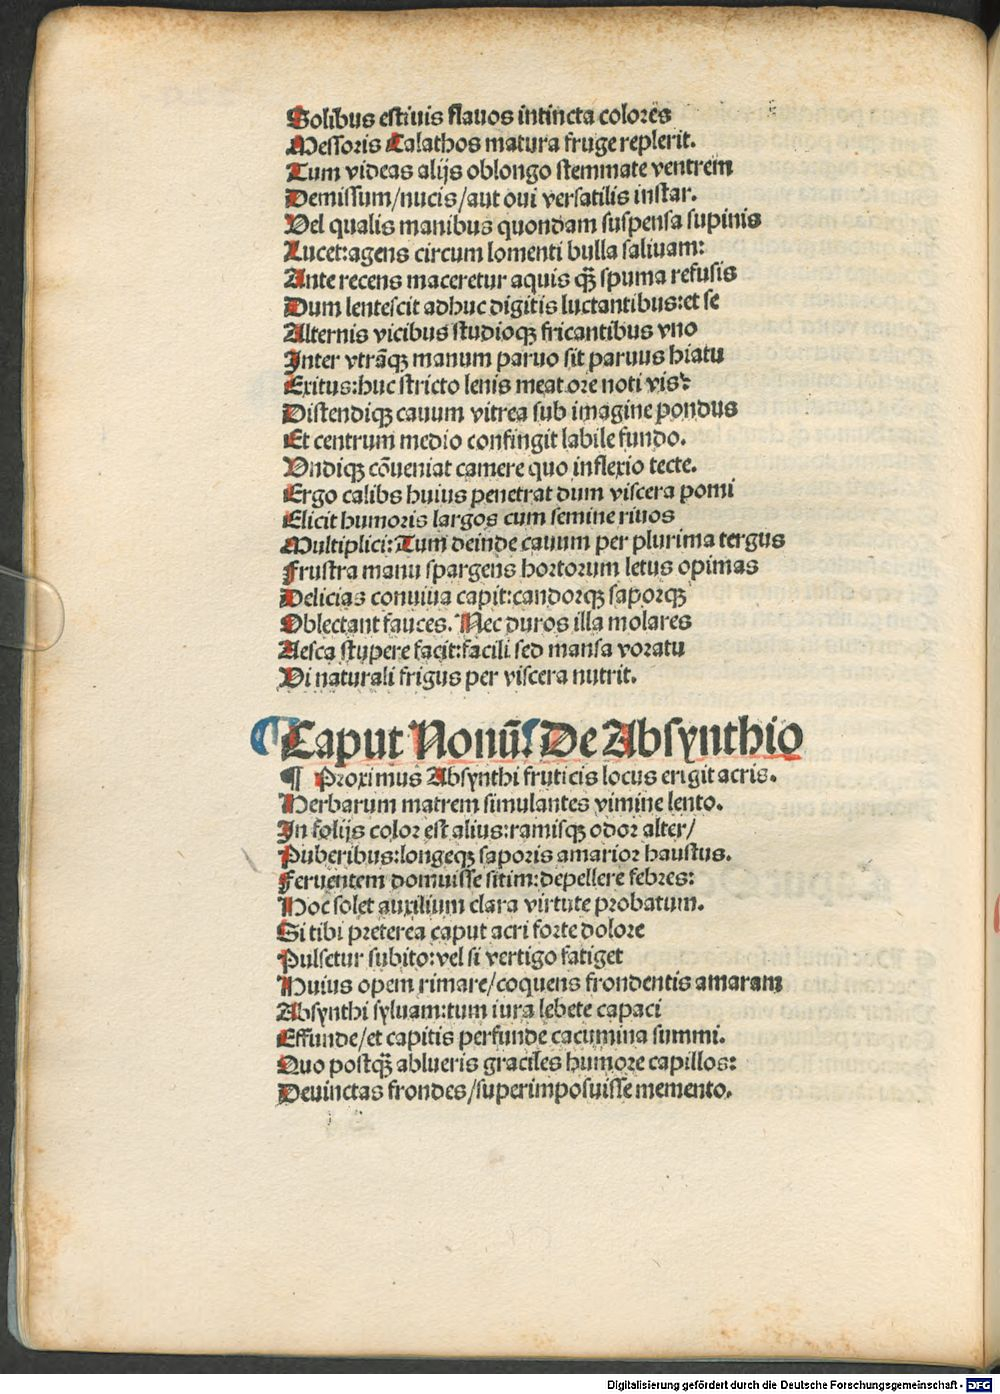 Solibus estiuis flauos intincta colores
Messoris Calathos matura fruge replerit.
Tum videas alijs oblongo stemmate ventrem
Demissum/nucis/aut oui versatilis instar.
Vel qualis manibus quondam suspensa supinis
Lucet:agens circum lomenti bulla saliuam:
Ante recens maceretur aquis qȝ̃ spuma refusis
Dum lentescit adhuc digitis luctantibus:et se
Alternis vicibus studioqȝ fricantibus vno
Inter vtrãqȝ manum paruo sit paruus hiatu
Exitus:huc stricto lenis meat ore noti vis:
Distendiqȝ cauum vitrea sub imagine pondus
Et centrum medio confingit labile fundo.
Vndiqȝ cõueniat camere quo inflexio tecte.
Ergo calibs huius penetrat dum viscera pomi
Elicit humoris largos cum semine riuos
Multiplici:Tum deinde cauum per plurima tergus
Frustra manu spargens hortorum letus opimas
Delicias conuiua capit:candorqȝ saporqȝ
Oblectant fauces. Nec duros illa molares
Aesca stupere facit:facili sed mansa voratu
Vi naturali frigus per viscera nutrit.
¶ Caput Nonũ. De Absynthio
¶ Proximus Absynthi fruticis locus erigit acris.
Herbarum matrem simulantes vimine lento.
In folijs color est alius:ramisqȝ odor alter/
Puberibus:longeqȝ saporis amarior haustus.
Feruentem domuisse sitim:depellere febres:
Hoc solet auxilium clara virtute probatum.
Si tibi preterea caput acri forte dolore
Pulsetur subito:vel si vertigo fatiget
Huius opem rimare/coquens frondentis amaram
Absynthi syluam:tum iura lebete capaci
Effunde/et capitis perfunde cacumina summi.
Quo postqȝ̃ ablueris graciles humore capillos:
Deuinctas frondes/superimposuisse memento.
Digitalisierung gefördert durch die Deutsche Forschungsgemeinschaft - DFG